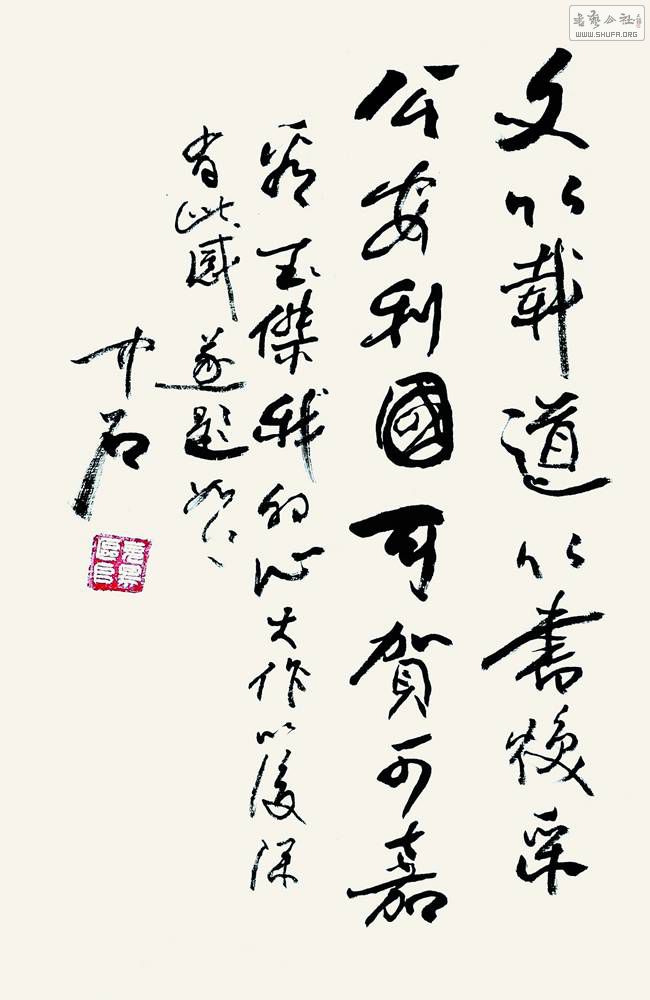 文以載道以書焕采
公安利國可賀可嘉
看玉傑我的心大作以後深
有此感遂題
中石
書藝公社
WWW.SHUFA.ORG